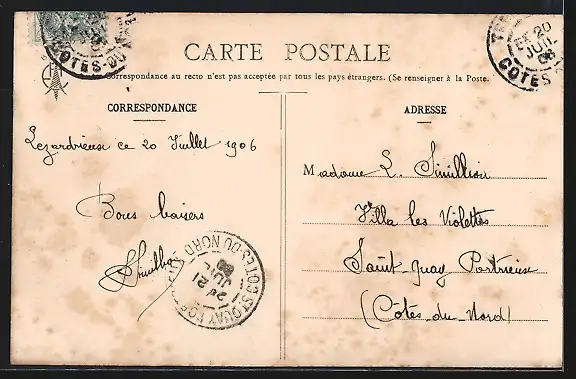 CARTE POSTALE
Correspondance au recto n'est pas acceptée par tous les pays étrangers. (Se renseigner à la Poste.
CORRESPONDANCE
Lezardrieux ce 20 Juillet 1906
Bons baisers
ADRESSE
Madame L.
Villa les Violettes
Saint-Quay Portrieux
(Côtes-du-Nord)
20
JUIL
06
COTES-DU
ST QUAY COTES-DU-NORD
21
JUIL
06